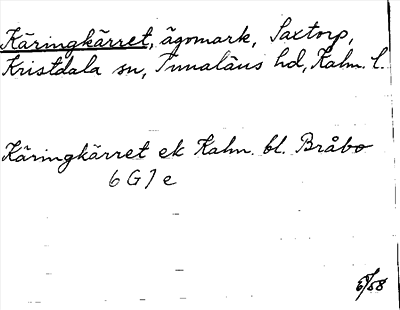 Käringkärret, ägomark, Saxtorp,
Kristdala sn, Tunaläns hd, Kalm. l.
Käringkärret ek Kalm. bl. Bråbo
6 G 1 e